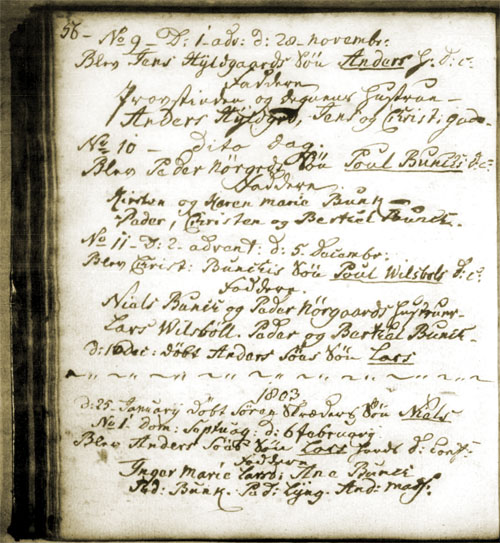 56 - No 9 - D: 1 adv: d: 28 novembr:
Blev Jens Hyldgaards Søn Anders f: d: c:
Faddere
Provstinden og degnens Hustrue -
Anders Hyldgrd, Jens og Christ:
No 10 - dito dag.
Blev Peder Nørgrds Søn Poul Bunchs d: c:
Faddere
Kirsten og Karen Marie Bunk -
Peder, Christen og Berthel Bunck.
No 11 - D: 2 advent d: 5 decembr.
Blev Christ: Bunchis Søn Poul Wilsbøls d: c:
Faddere.
Niels Bunck og Peder Nørgaards Hustruer
Lars Wilsböll. Peder og Berthel Bunck -
d: dec: døbt Anders Søn Lars
1803
d: 25 January døbt Søren Søn Niels
No 1. dom: Septuag: d: 6 February
Blev Anders Søn Lars d: Conf:
Faddere
Inger Marie Larsd: Ane Bunck
Ped: Bunk. Ped: Lyng. And: Mads.